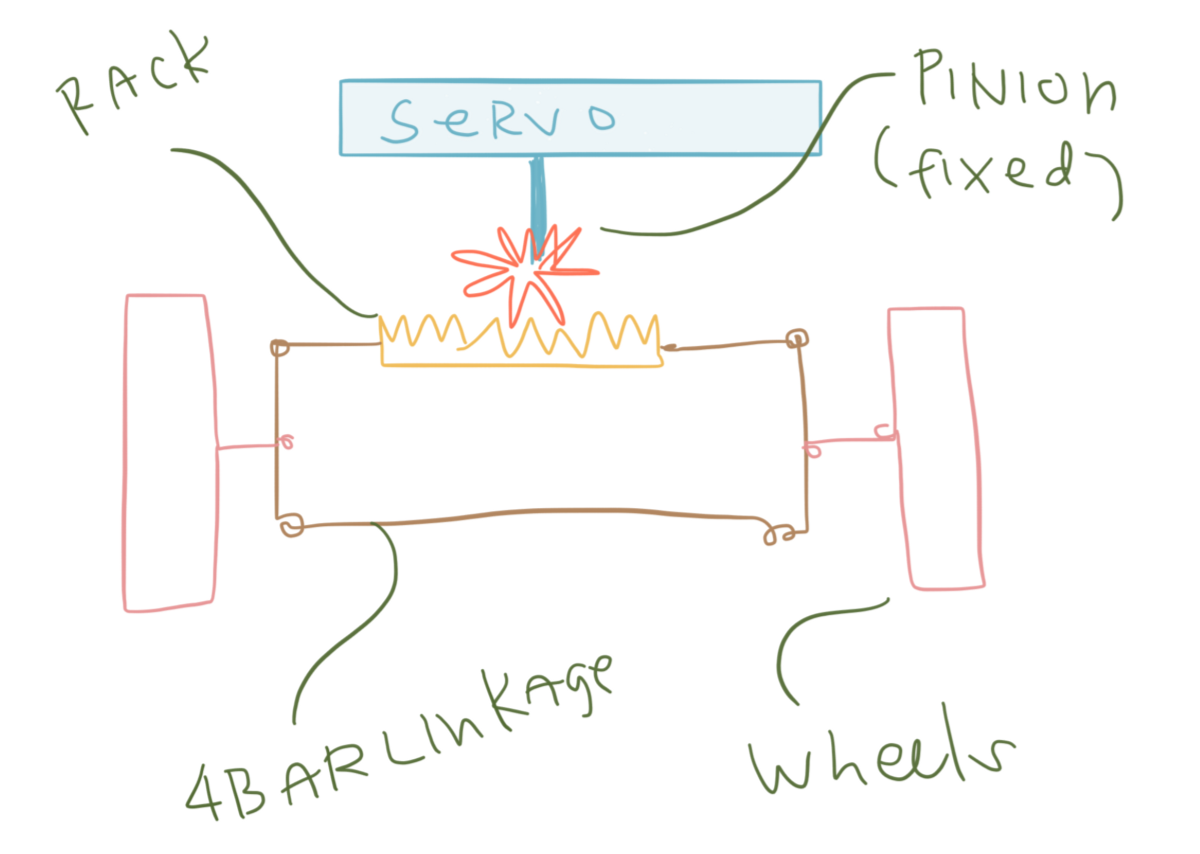 RACK
SeRVO
PINIOn
(fixed)
4BARLInKAge
wheels